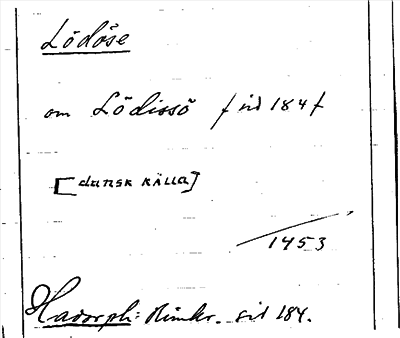 Lödöse
om Lödissö f sid 184 f
[dansk källa]
1453
Hadorph: Rimkr. sid 184.